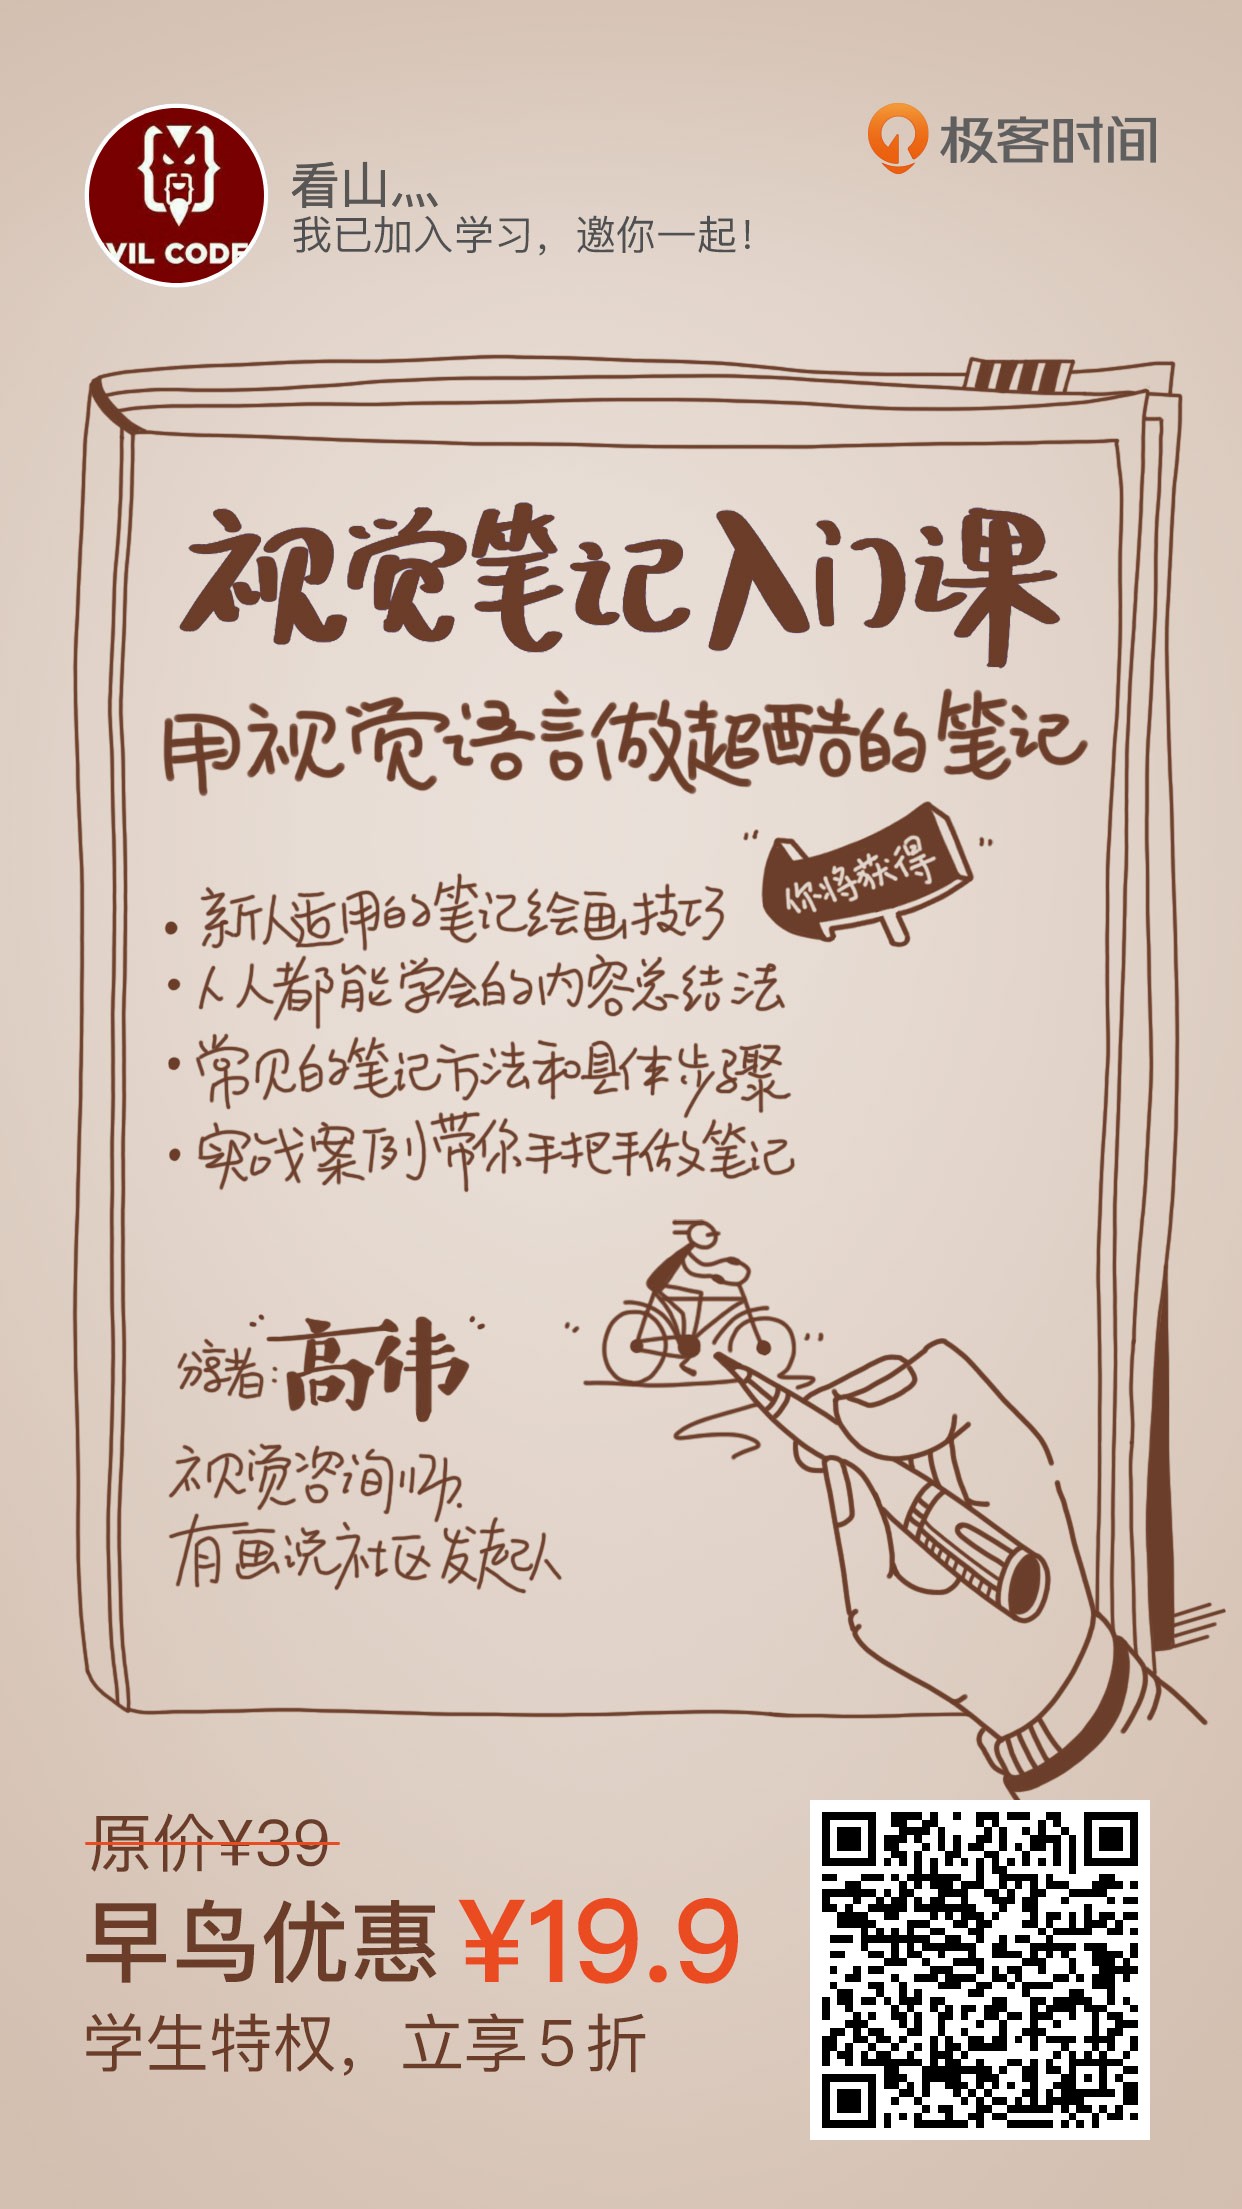 极客时间
VIL CODE
看山灬
我已加入学习，邀你一起！
视觉笔记入门课
用视觉语言做超酷的笔记
你将获得
• 新人适用的笔记绘画技巧
• 人人都能学会的内容总结法
• 常见的笔记方法和具体步骤
• 实战案例带你手把手做笔记
分享者：高伟
视觉咨询师.
有画说社区发起人
原价¥39
早鸟优惠 ¥19.9
学生特权，立享5折